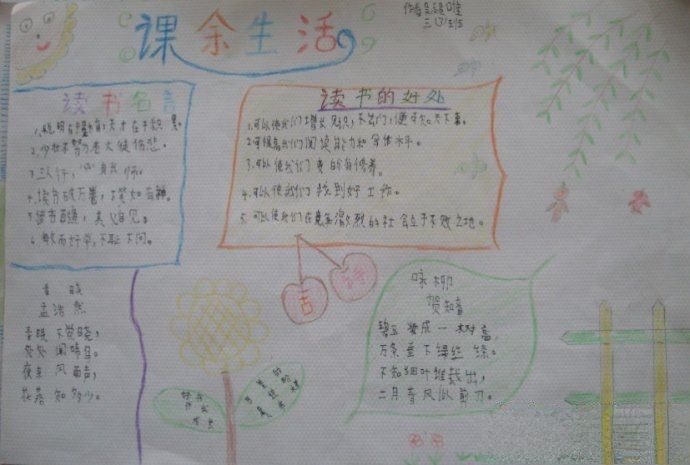 课余生活
三(3)班
读书名言
2、少壮不努力老大徒伤悲。
4、读书破万卷,下笔如有神。
6、敏而好学,不耻下问。
读书的好处
1、可以使我们增长见识,不出门,便可知天下事。
2、可提高我们阅读能力和写作水平。
3、可以使我们更的有修养。
4、可以使我们找到好工作。
5、可以使我们在竟争激烈的社会立于不败之地。
古
诗
春晓
孟浩然
春眠不觉晓,
处处闻啼鸟。
夜来风雨声,
花落知多少。
咏柳
贺知章
碧玉妆成一树高,
万条垂下绿丝绦。
不知细叶谁裁出,
二月春风似剪刀。